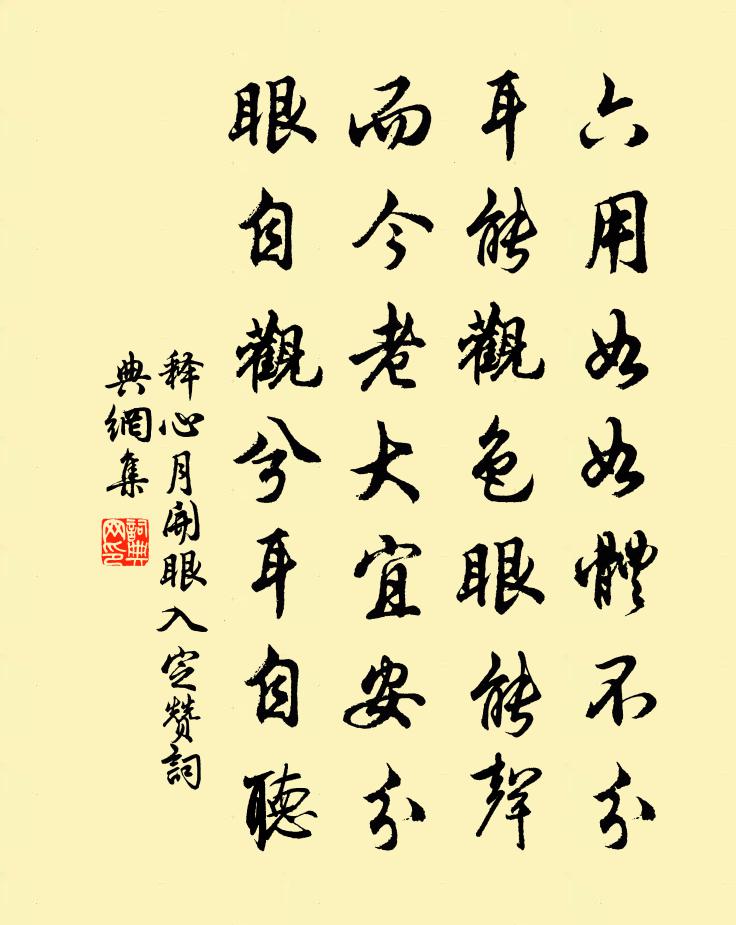 六用如如體不分
耳能觀色眼能聲
而今老大宜安分
眼自觀兮耳自聽
释心月開眼入定赞詞
典網集
詞典網印